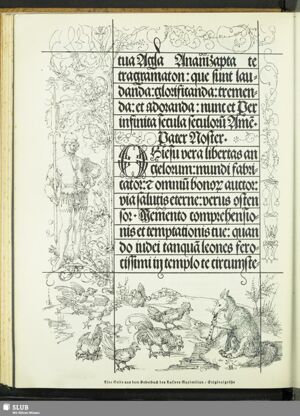 tua Agla Ananisapta te
tragramaton: que sunt lau-
danda: glorificanda: tremen-
da: et adoranda: nunc et Per
infinita secula seculorū Amē.
Pater Noster.
O Jesu vera libertas an
gelorum: mundi fabri
cator: ⁊ omniū bonoꝝ auctor:
via salutis eterne: verus osten
sor. Memento comprehensio
nis et temptationis tue: quan
do iudei tanquā leones fero
cissimi in templo te circumste
Eine Seite aus dem Gebetbuch des Kaisers Maximilian / Originalgröße
SLUB